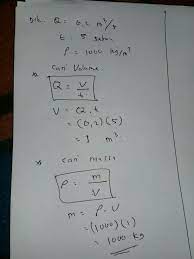 Dik : Q = 0,2 m³/s
t : 5 sekon
ρ = 1000 kg/m³
Cari Volume.
Q = V/t
V = Q . t
= (0,2)(5)
= 1 m³.
Cari massa
ρ = m/V
m = ρ . V
= (1000)(1)
= 1000 kg